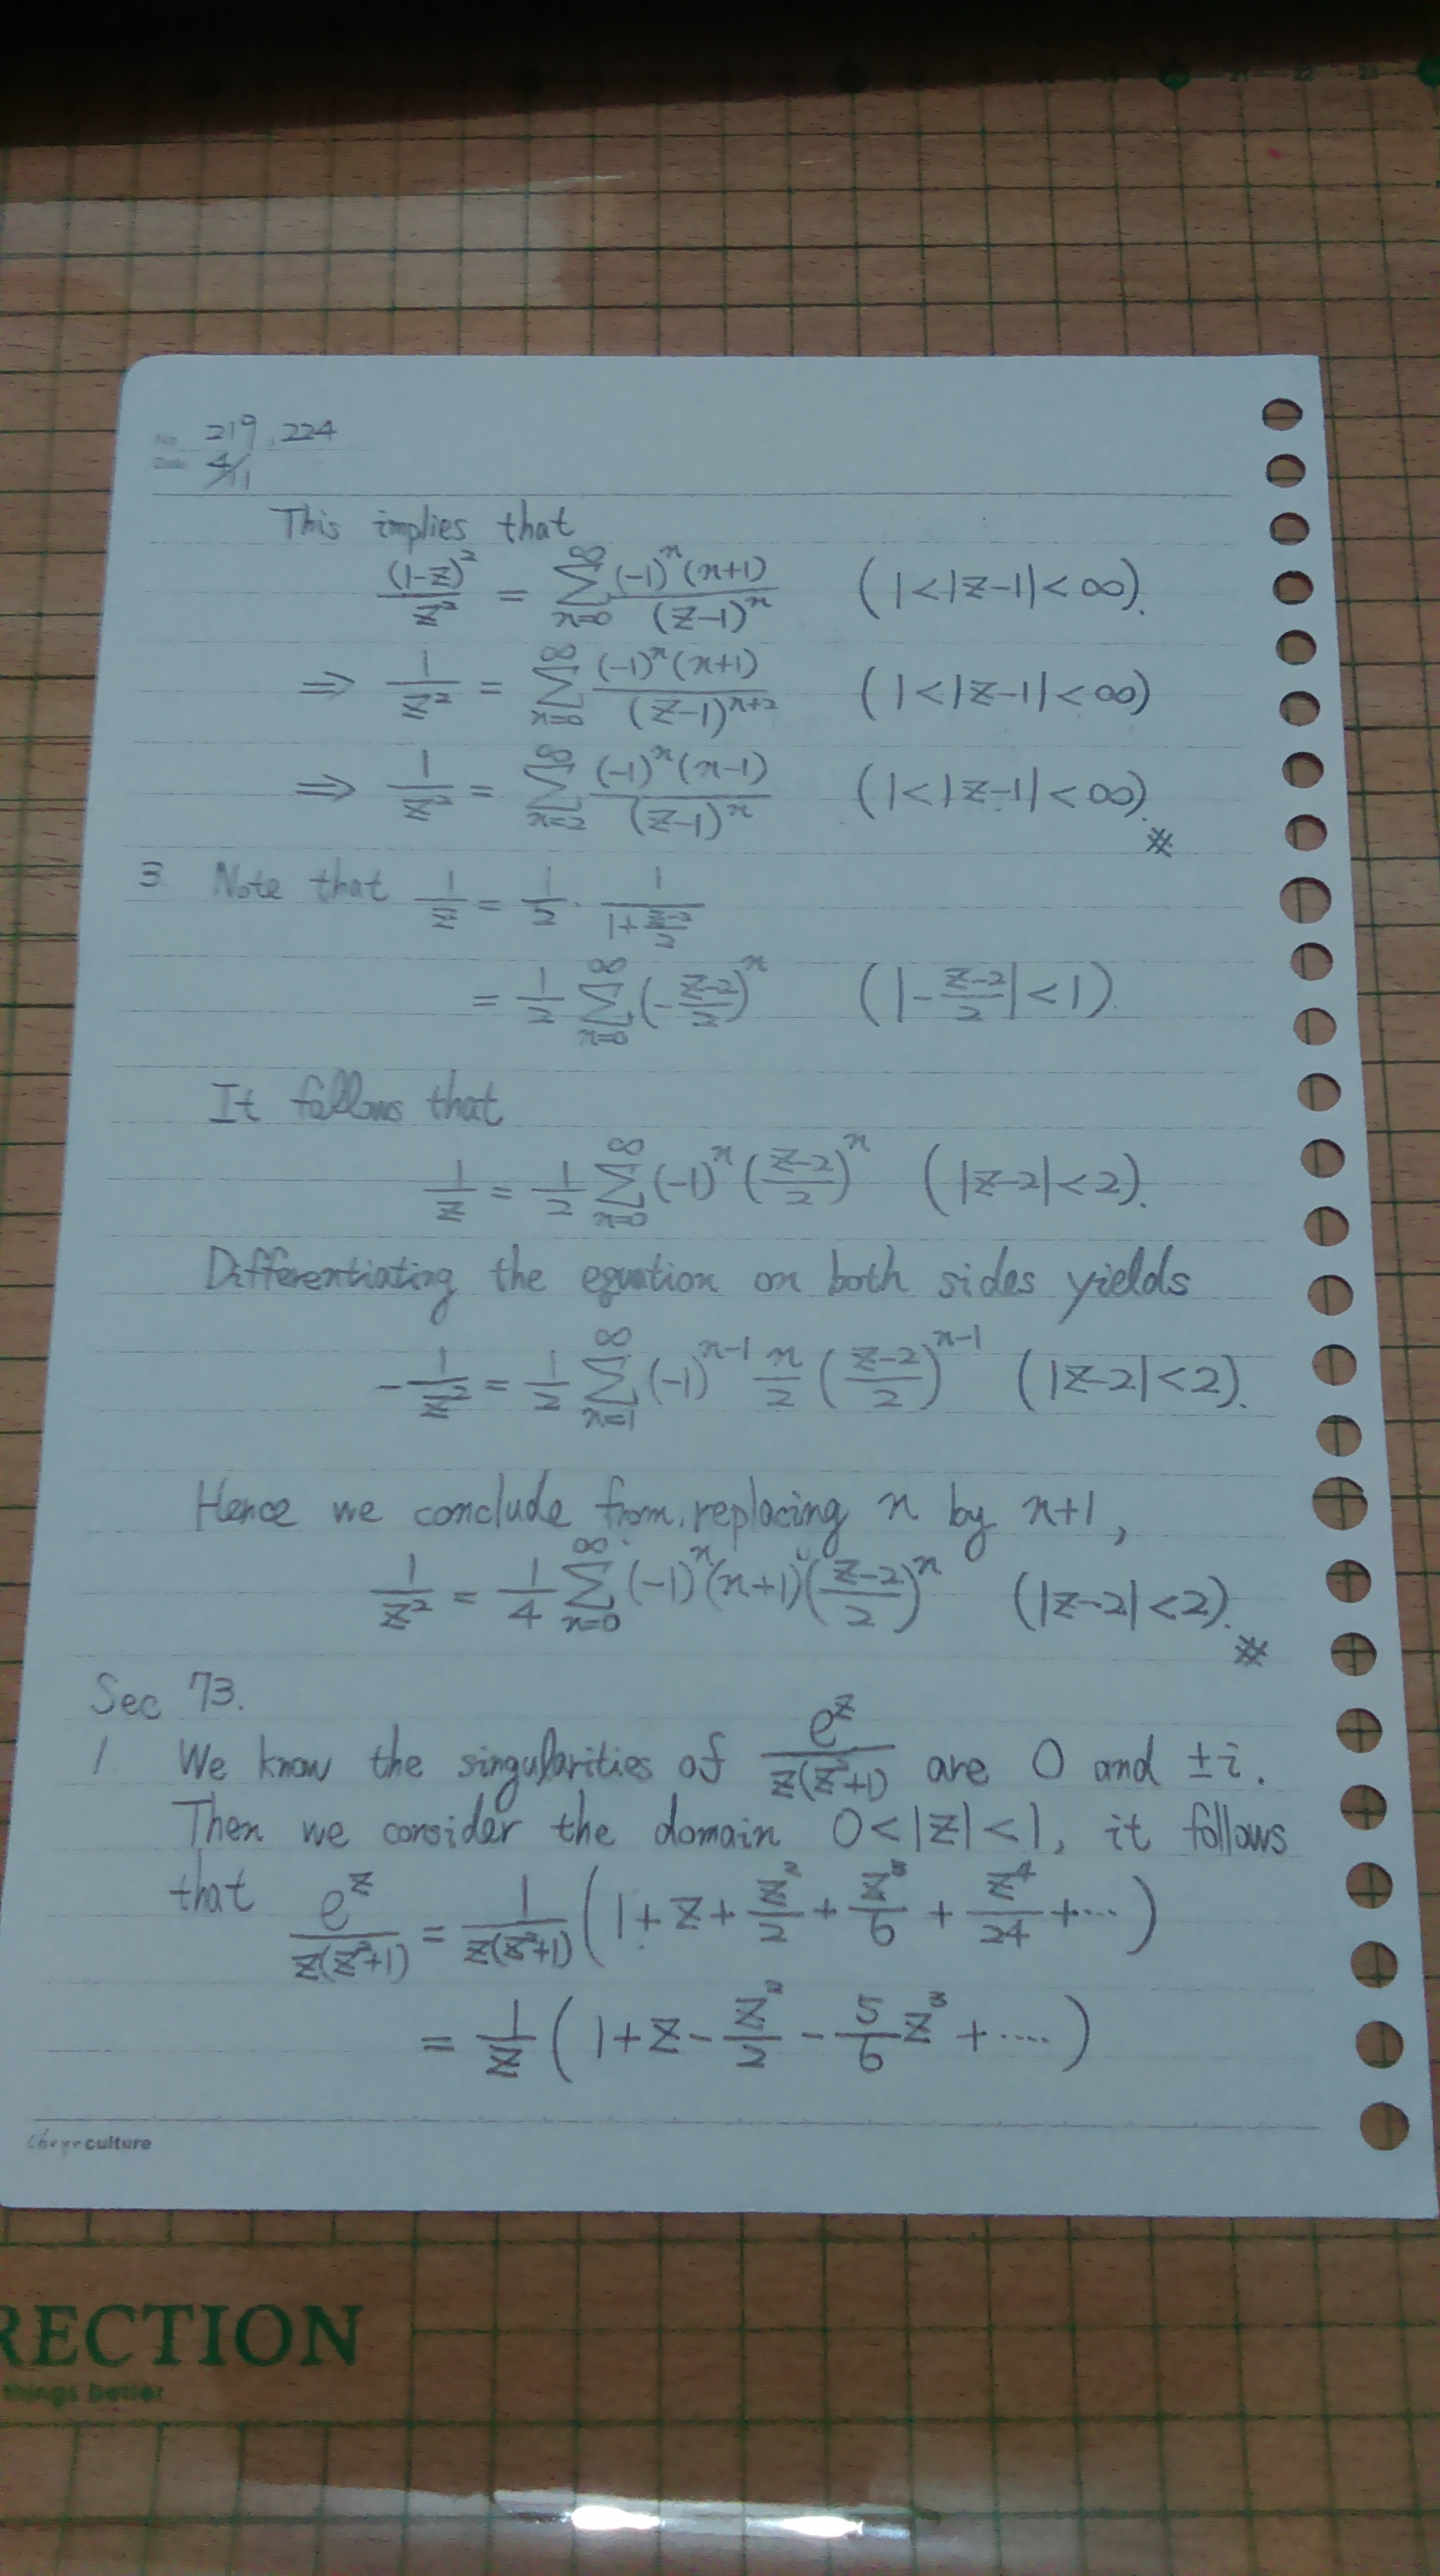 No. 219, 224
Date 4/11
This implies that
(1-z)²/z² = ∑_{n=0}^{∞} (-1)ⁿ(n+1)/(z-1)ⁿ (1<|z-1|<∞).
⇒ 1/z² = ∑_{n=0}^{∞} (-1)ⁿ(n+1)/(z-1)ⁿ⁺² (1<|z-1|<∞)
⇒ 1/z² = ∑_{n=2}^{∞} (-1)ⁿ(n-1)/(z-1)ⁿ (1<|z-1|<∞). ※
3. Note that 1/z = 1/2 · 1/(1+(z-2)/2)
= 1/2 ∑_{n=0}^{∞} (-(z-2)/2)ⁿ (|-(z-2)/2|<1).
It follows that
1/z = 1/2 ∑_{n=0}^{∞} (-1)ⁿ ((z-2)/2)ⁿ (|z-2|<2).
Differentiating the equation on both sides yields
-1/z² = 1/2 ∑_{n=1}^{∞} (-1)ⁿ⁻¹ n/2 ((z-2)/2)ⁿ⁻¹ (|z-2|<2).
Hence we conclude from, replacing n by n+1,
1/z² = 1/4 ∑_{n=0}^{∞} (-1)ⁿ(n+1)((z-2)/2)ⁿ (|z-2|<2). ※
Sec 73.
1. We know the singularities of e^z/(z(z²+1)) are 0 and ±i.
Then we consider the domain 0<|z|<1, it follows
that e^z/(z(z²+1)) = 1/(z(z²+1)) (1+z+z²/2+z³/6+z⁴/24+···)
= 1/z (1+z-z²/2-5/6 z³+····)
culture
RECTION
things better